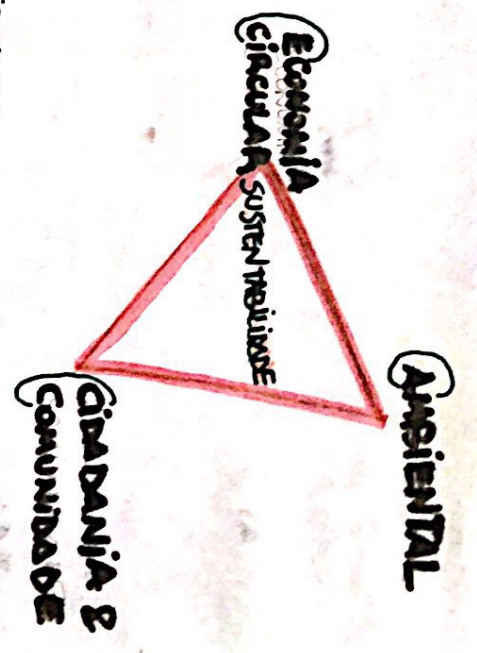 ECONOMÍA
CIRCULAR
SUSTENTABILIDADE
AMBIENTAL
CIDADANÍA &
COMUNIDADE